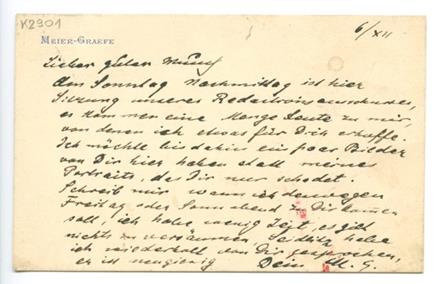 K2901
MEIER-GRAEFE
6/XII
Lieber guter Munch
Am Sonntag Nachmittag ist hier
Sitzung unseres Redactionsausschusses,
es kommen eine Menge Leute zu mir,
von denen ich etwas für Dich erhoffe.
Ich möchte bis dahin ein paar Bilder
von Dir hier haben statt meines
Portraits, das Dir nur schadet.
Schreib mir wann ich deswegen
Freitag oder Sonnabend zu Dir kommen
soll, ich habe wenig Zeit, es gilt
nichts zu versäumen. Seidlitz habe
ich wiederholt von Dir gesprochen,
er ist neugierig Dein M. G.